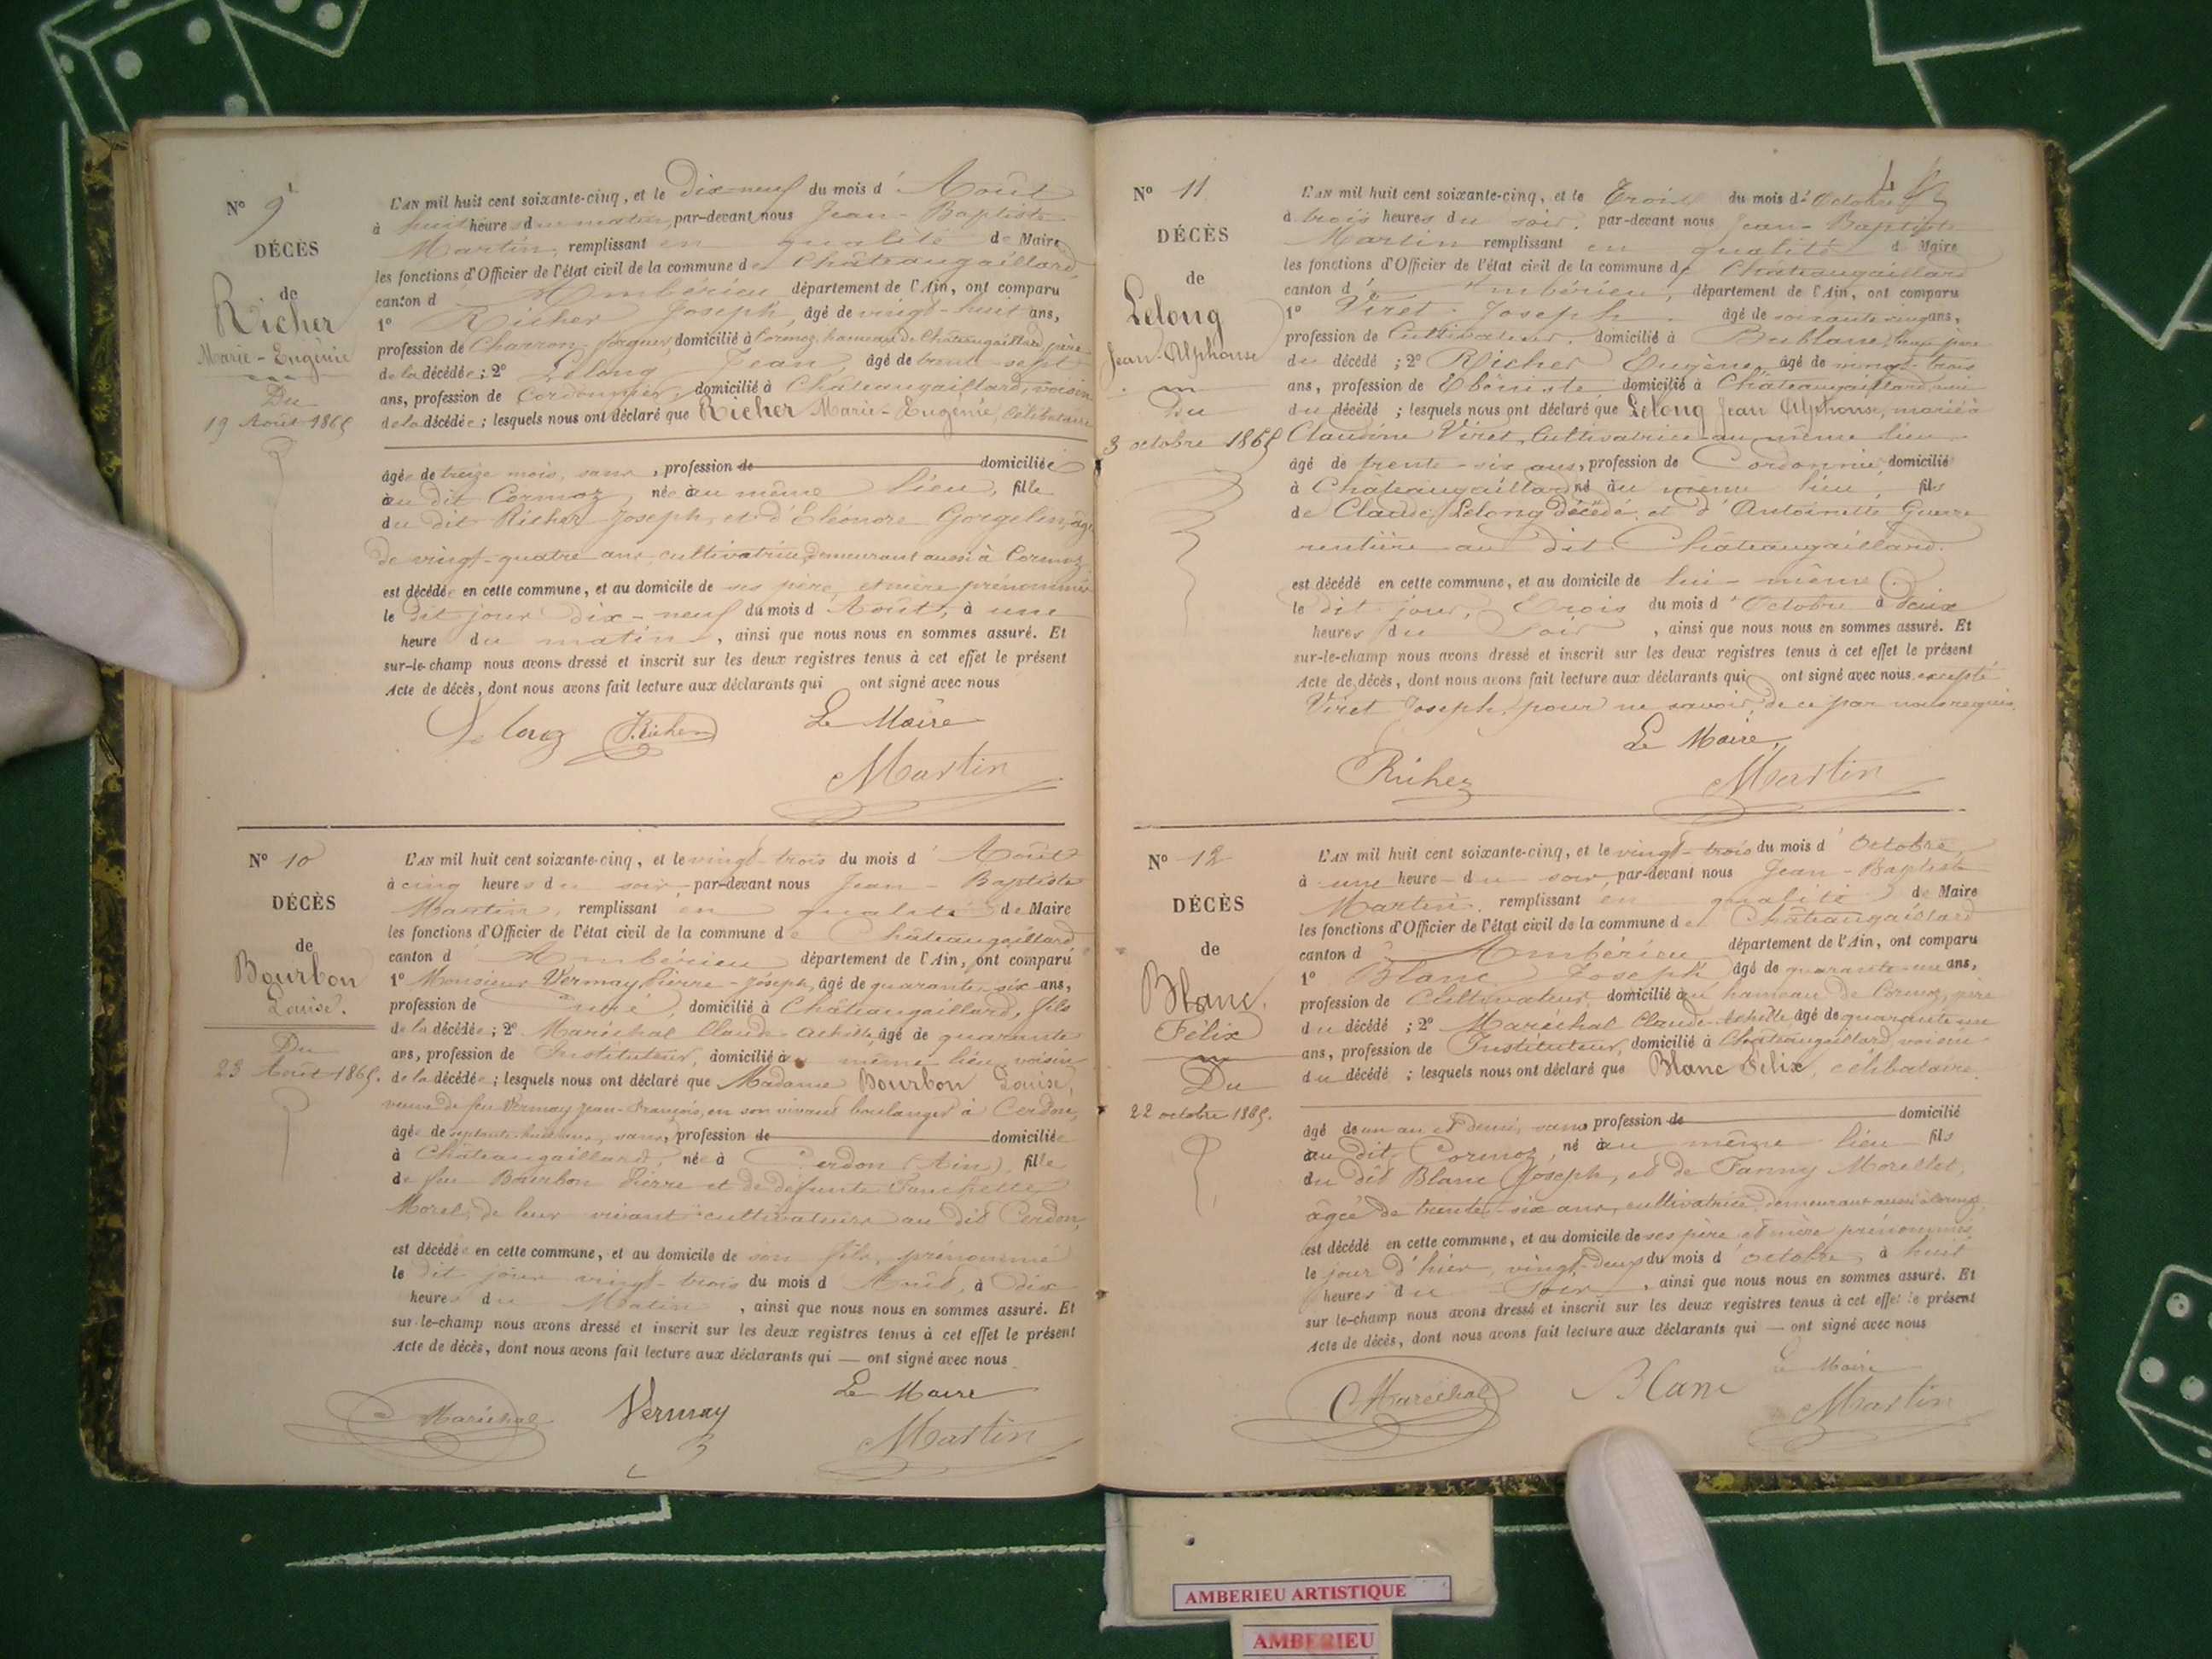 N° 9
DÉCÈS
de
Richer
Marie-Eugénie
Du
19 Août 1865
L'AN mil huit cent soixante-cinq, et le Dix-neuf du mois d' Août
à huit heures du matin, par-devant nous Jean-Baptiste
Martin, remplissant en qualité de Maire
les fonctions d'Officier de l'état civil de la commune de Châteaugaillard
canton d' Ambérieu département de l'Ain, ont comparu
1° Richer Joseph, âgé de vingt-huit ans,
profession de Charron-forgeur, domicilié à Cormoz, hameau de Châteaugaillard, père
de la décédée ; 2° Lelong Jean, âgé de trente-sept
ans, profession de Cordonnier, domicilié à Châteaugaillard, voisin
de la décédée ; lesquels nous ont déclaré que Richer Marie-Eugénie, Célibataire
âgée de treize mois, sans, profession de domiciliée
au dit Cormoz, née au même lieu, fille
du dit Richer Joseph, et d'Eléonore Gorgelin, âgée
de vingt-quatre ans, cultivatrice, demeurant aussi à Cormoz
est décédée en cette commune, et au domicile de ses père et mère prénommés
le dit jour dix-neuf du mois d' Août, à une
heure du matin, ainsi que nous nous en sommes assuré. Et
sur-le-champ nous avons dressé et inscrit sur les deux registres tenus à cet effet le présent
Acte de décès, dont nous avons fait lecture aux déclarants qui ont signé avec nous
Lelong J. Richer Le Maire
Martin
N° 10
DÉCÈS
de
Bourbon
Louise.
Du
23 Août 1865.
L'AN mil huit cent soixante-cinq, et le vingt-trois du mois d' Août
à cinq heures du soir, par-devant nous Jean-Baptiste
Martin, remplissant en qualité de Maire
les fonctions d'Officier de l'état civil de la commune de Châteaugaillard
canton d' Ambérieu département de l'Ain, ont comparu
1° Monsieur Vermay Pierre-Joseph, âgé de quarante-six ans,
profession de Curé, domicilié à Châteaugaillard, fils
de la décédée ; 2° Maréchal Claude-Achille, âgé de quarante
ans, profession de Instituteur, domicilié à même lieu, voisin
de la décédée ; lesquels nous ont déclaré que Madame Bourbon Louise,
veuve de feu Vermay Jean-François, en son vivant boulanger à Cerdon,
âgée de septante-huit ans, sans, profession de domiciliée
à Châteaugaillard, née à Cerdon (Ain), fille
de feu Bourbon Pierre et de défunte Fanchette
Morel, de leur vivant cultivateurs au dit Cerdon,
est décédée en cette commune, et au domicile de son fils, prénommé
le dit jour vingt-trois du mois d' Août, à dix
heures du Matin, ainsi que nous nous en sommes assuré. Et
sur-le-champ nous avons dressé et inscrit sur les deux registres tenus à cet effet le présent
Acte de décès, dont nous avons fait lecture aux déclarants qui — ont signé avec nous
Le Maire
Maréchal Vermay Martin
N° 11
DÉCÈS
de
Lelong
Jean-Alphonse
Du
3 octobre 1865
L'AN mil huit cent soixante-cinq, et le Trois du mois d' Octobre
à trois heures du soir, par-devant nous Jean-Baptiste
Martin remplissant en qualité de Maire
les fonctions d'Officier de l'état civil de la commune de Châteaugaillard
canton d' Ambérieu, département de l'Ain, ont comparu
1° Viret Joseph, âgé de soixante-cinq ans,
profession de Cultivateur, domicilié à Bublane, beau-père
du décédé ; 2° Richer Eugène, âgé de vingt-trois
ans, profession de Ebéniste, domicilié à Châteaugaillard, ami
du décédé ; lesquels nous ont déclaré que Lelong Jean Alphonse, marié à
Claudine Viret, Cultivatrice au même lieu
âgé de trente-six ans, profession de Cordonnier, domicilié
à Chateaugaillard né au même lieu, fils
de Claude Lelong décédé, et d'Antoinette Guerre
rentière au dit Châteaugaillard.
est décédé en cette commune, et au domicile de lui-même
le dit jour, Trois du mois d' Octobre à deux
heures du soir, ainsi que nous nous en sommes assuré. Et
sur-le-champ nous avons dressé et inscrit sur les deux registres tenus à cet effet le présent
Acte de décès, dont nous avons fait lecture aux déclarants qui ont signé avec nous excepté
Viret Joseph, pour ne savoir, de ce par nous requis.
Le Maire,
Richer Martin
N° 12
DÉCÈS
de
Blanc,
Félix
Du
22 octobre 1865.
L'AN mil huit cent soixante-cinq, et le vingt-trois du mois d' Octobre,
à une heure du soir, par-devant nous Jean-Baptiste
Martin, remplissant en qualité de Maire
les fonctions d'Officier de l'état civil de la commune de Châteaugaillard
canton d' Ambérieu département de l'Ain, ont comparu
1° Blanc Joseph âgé de quarante-un ans,
profession de Cultivateur, domicilié au hameau de Cormoz, père
du décédé ; 2° Maréchal Claude-Achille, âgé de quarante-un
ans, profession de Instituteur, domicilié à Châteaugaillard, voisin
du décédé ; lesquels nous ont déclaré que Blanc Félix, célibataire.
âgé de un an et demi, sans profession de domicilié
au dit Cormoz, né au même lieu fils
du dit Blanc Joseph, et de Fanny Morellet,
âgée de trente-six ans, cultivatrice, demeurant aussi à Cormoz
est décédé en cette commune, et au domicile de ses père et mère prénommés
le jour d'hier, vingt-deux du mois d' octobre, à huit
heures du soir, ainsi que nous nous en sommes assuré. Et
sur le-champ nous avons dressé et inscrit sur les deux registres tenus à cet effet le présent
Acte de décès, dont nous avons fait lecture aux déclarants qui — ont signé avec nous
Le Maire
Maréchal Blanc Martin
AMBERIEU ARTISTIQUE
AMBERIEU